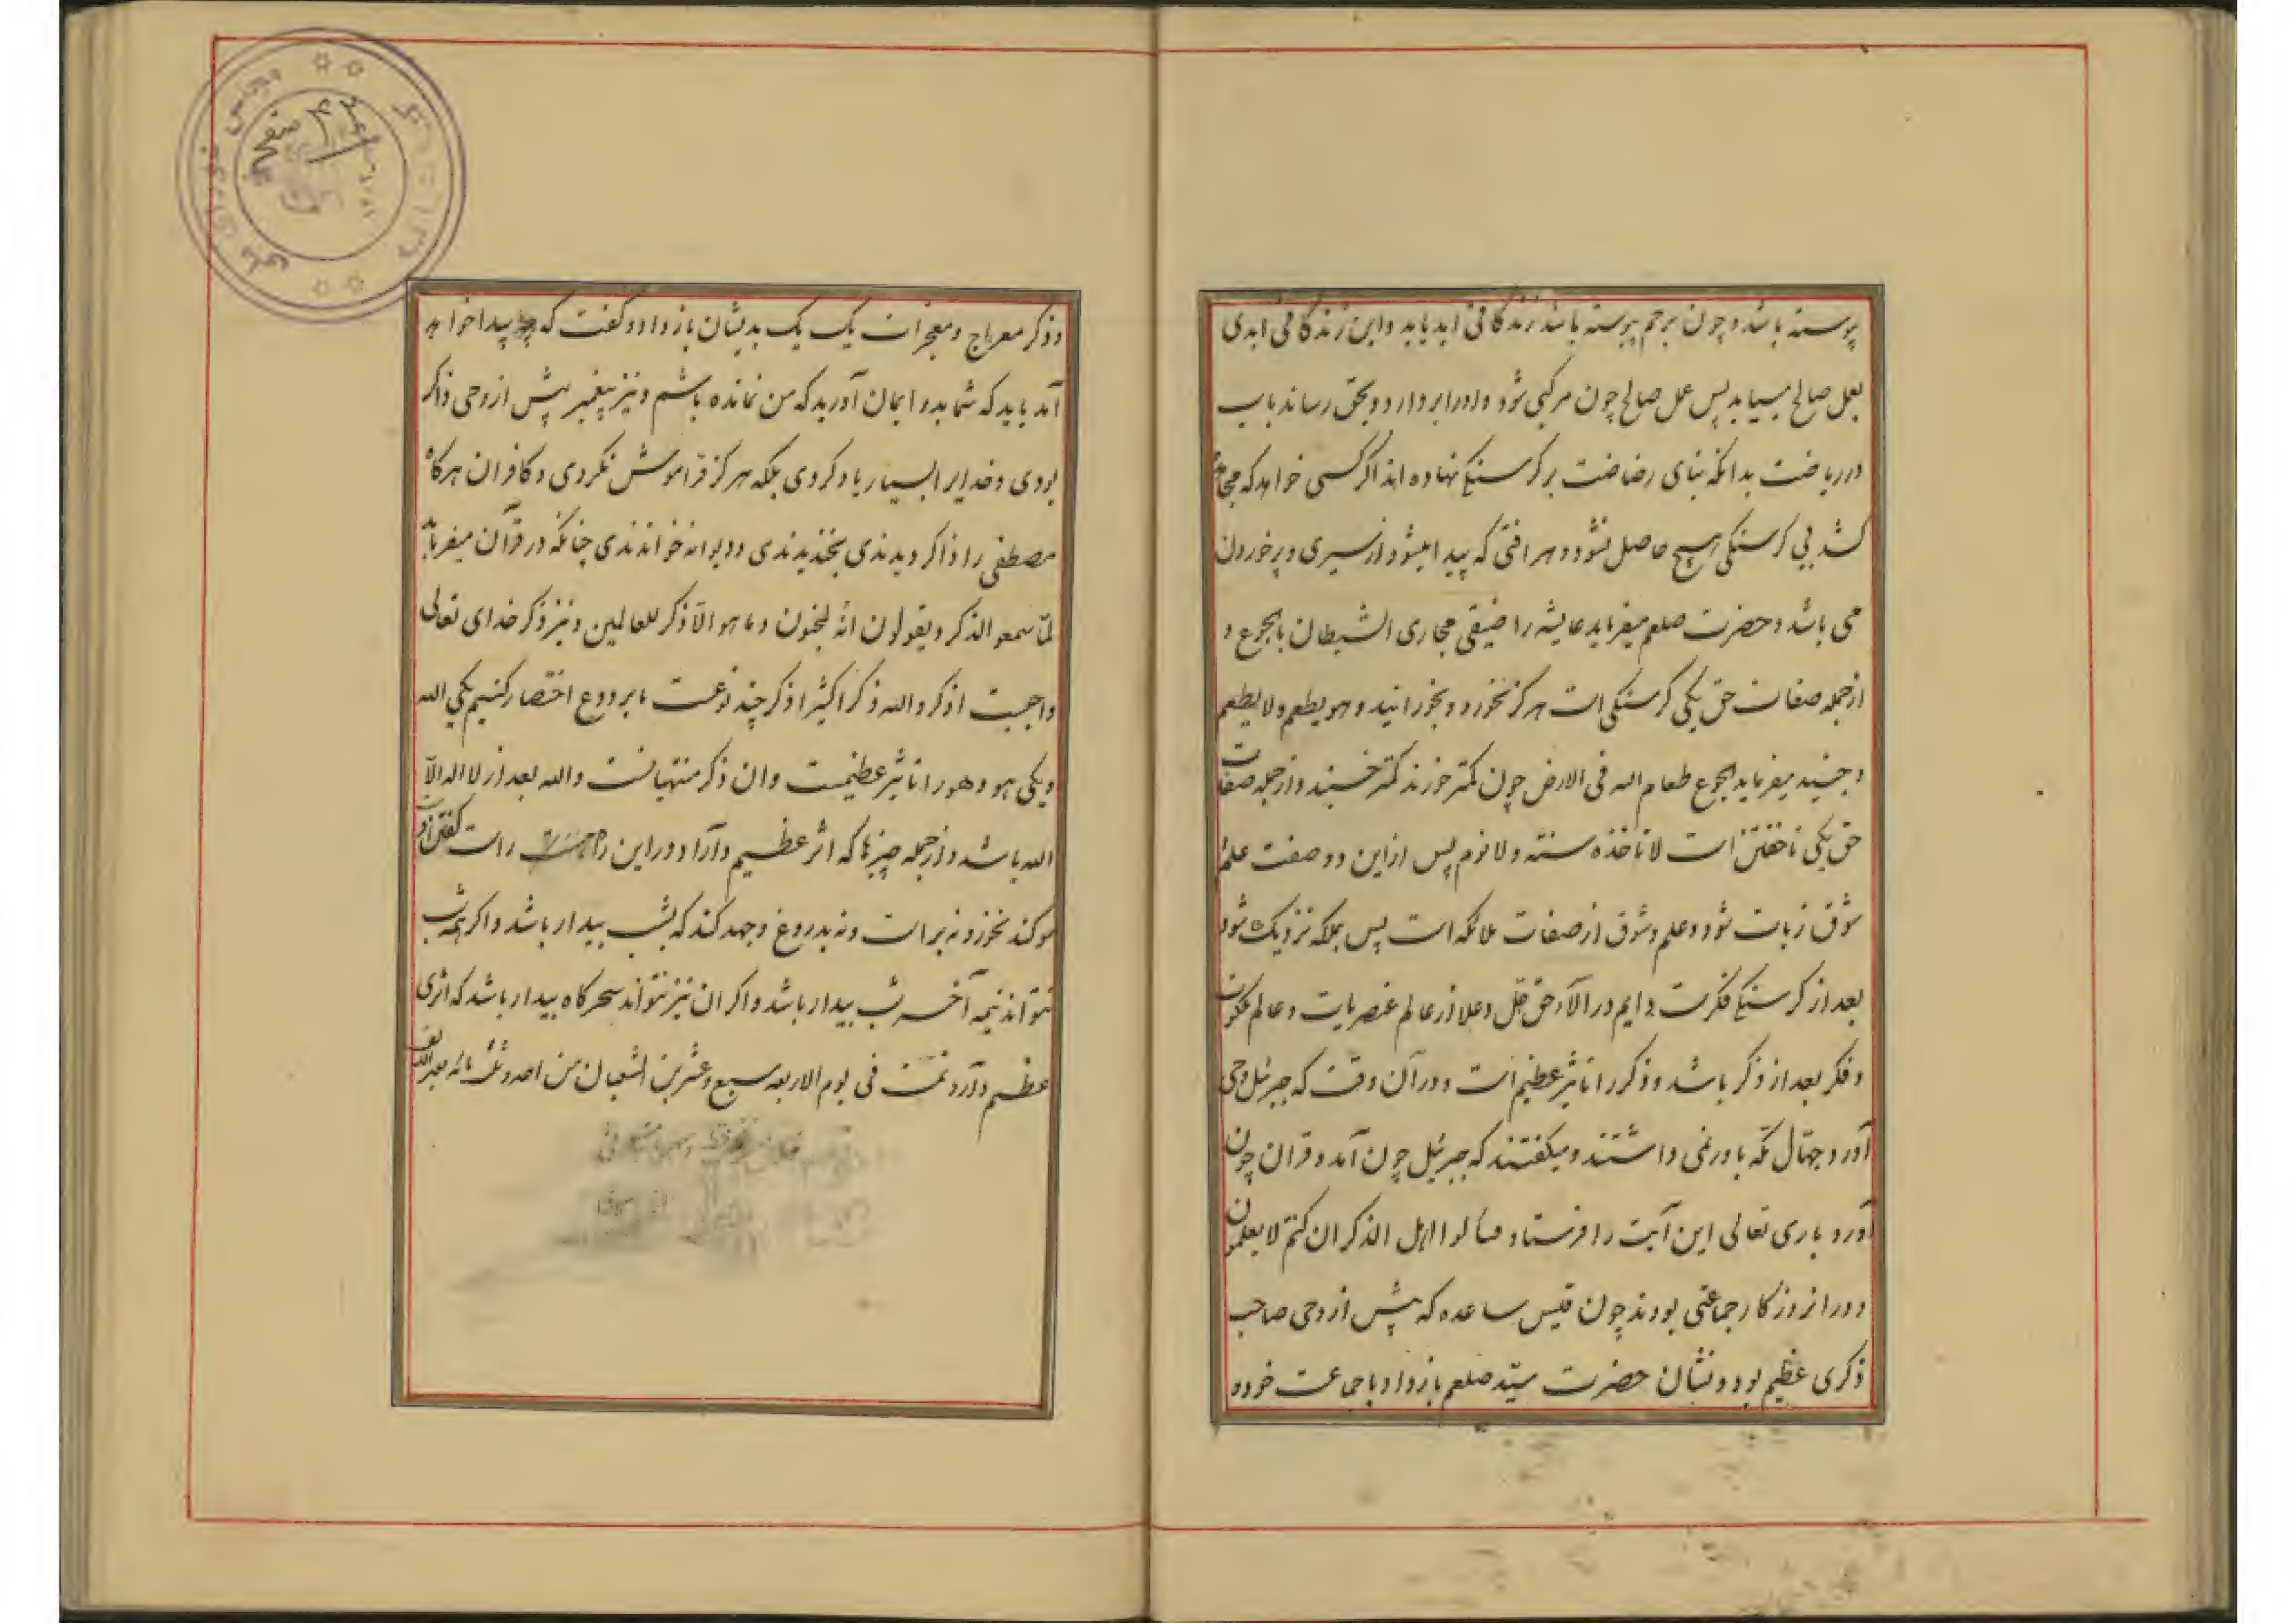 پیوسته باشد و چون برحم پیوسته باشد زندگانی ابد یابد و این زندگانی ابدی
بعمل صالح میباید پس عمل صالح چون مرکبی شود و او را بردارد و بحق رساند باب
در ریاضت بدانکه بنای رضاضت بر کرسنگی نهاده اند اگر کسی خواهد که
کشد بی کرسنکی هیچ حاصل نشود و هر افتی که پیدا میشود از سیری و پر خوردن
می باشد و حضرت صلعم میفرماید عایشه را ضیقی مجاری الشیطان بالجوع و
از جمله صفات حق یکی کرسنکی است هرکز نخورد و بخورانید و هو یطعم ولا یطعم
و جنید میفرماید الجوع طعام الله فی الارض چون کمتر خورند کمتر خسبند و از جمله صفات
حق یکی ناخفتن است لا تاخذه سنته ولا نوم پس از این دو صفت علم
شوق زیات شود و علم و شوق از صفات ملائکه است پس بملکه نزدیک شود
بعد از کرسنکی فکرت دایم در الآء حق جل و علا از عالم عنصریات و عالم ملکوت
و فکر بعد از ذکر باشد و ذکر را تاثیر عظیم است و در آن وقت که جبرئیل وحی
آورد جهال مکه باور نمی داشتند و میکفتند که جبرئیل چون آمد و قران چون
آورد باری تعالی این آیت را فرستاد فسالوا اهل الذکر ان کنتم لا یعلمون
و در انروزکار جماعتی بودند چون قیس ساعده که پیش از وحی صاحب
ذکری عظیم بود و نشان حضرت سید صلعم باز داد با جماعت خود و
و ذکر معراج و معجزات یک یک بدیشان باز داد و کفت که پیدا خواهد
آمد باید که شما بدو ایمان آورید که من نمانده باشم و نیز پیغمبر پیش از وحی ذاکر
بودی و خدایرا بسیار یاد کردی بلکه هرکز فراموش نکردی و کافران هرکاه
مصطفی را ذاکر دیدندی بخندیدندی و دیوانه خواندندی چنانکه در قرآن میفرماید
لما سمعو الذکر و یقولون انه لمجنون و ما هو الا ذکر للعالمین و نیز ذکر خدای تعالی
واجبست اذکروا الله ذکرا کثیرا ذکر چند نوعست ما بر دو ع اختصار کنیم یکی الله
و یکی هو و هو را تاثیر عظیمست و ان ذکر منتهیانست و الله بعد از لا اله الا
الله باشد و از جمله چیزها که اثر عظیم دارد در این راه راست کفتن است
سوکند نخورد نه براست و نه بدروغ و جهد کند که بشب بیدار باشد و اکر همه شب
نتواند نیمه آخر شب بیدار باشد و اکر ان نیز نتواند سحرکاه بیدار باشد که اثری
عظیم دارد تمت فی یوم الاربعه سبع و عشرین الشعبان من احد و ثلث مائه بعد الف
۴۲ صفحه